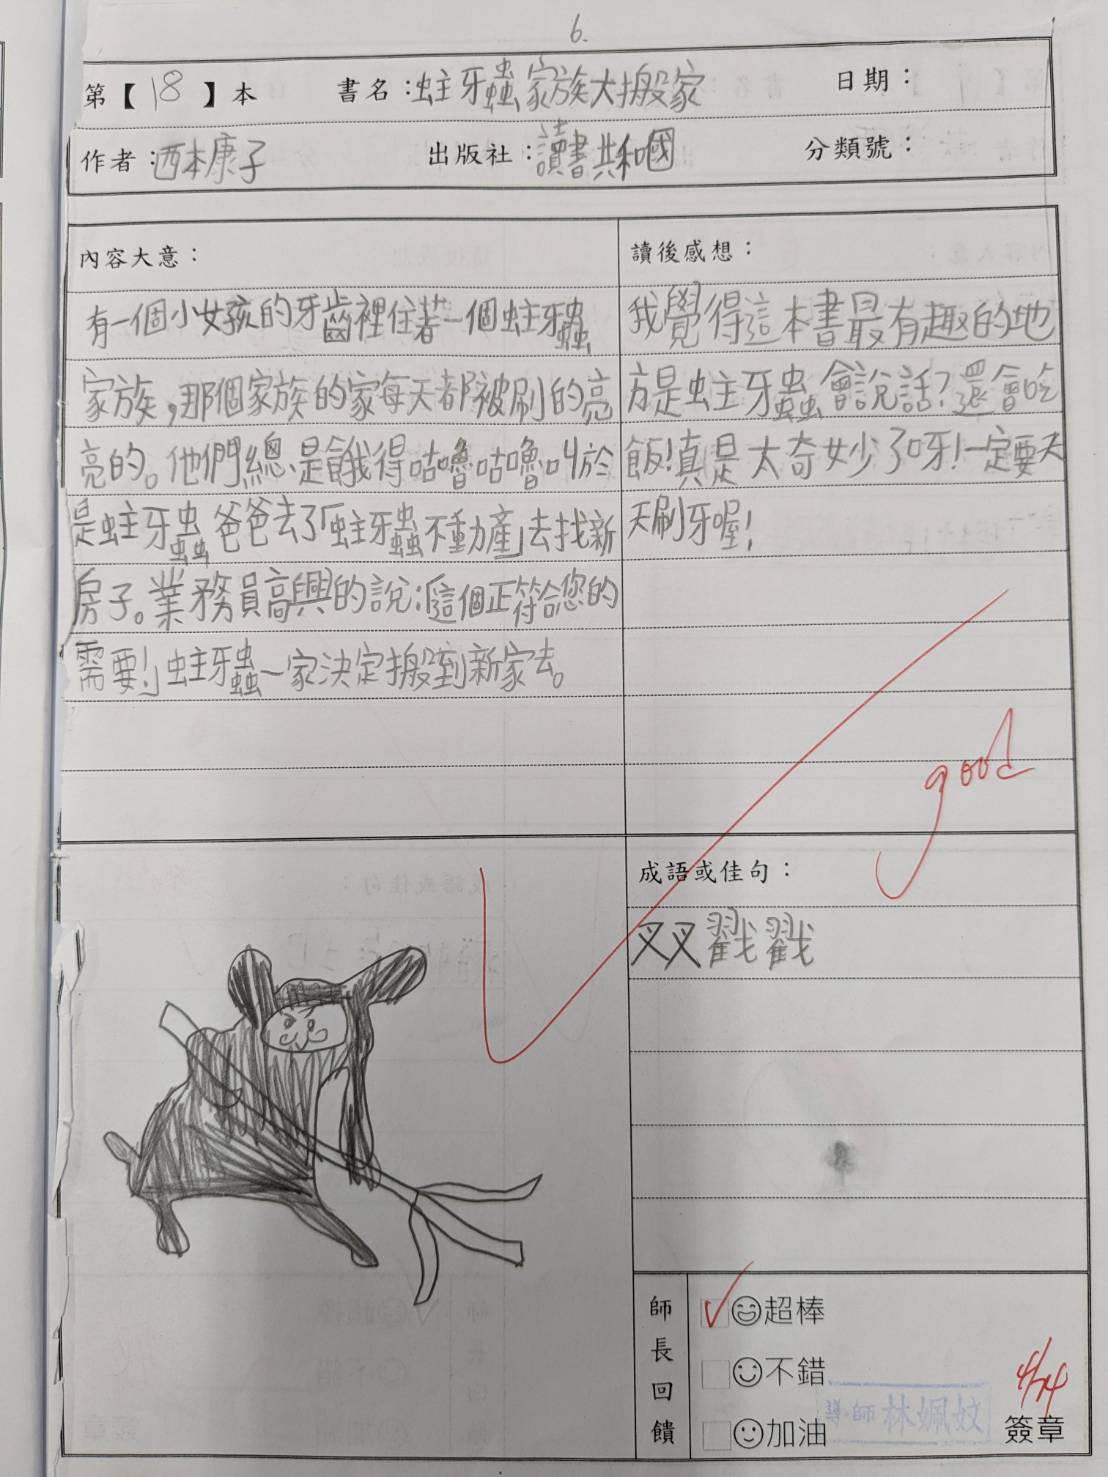 6.
第【 18 】本 書名：蛀牙蟲家族大搬家 日期：
作者：西本康子 出版社：讀書共和國 分類號：
內容大意：
有一個小女孩的牙齒裡住著一個蛀牙蟲
家族，那個家族的家每天都被刷的亮
亮的。他們總是餓得咕嚕咕嚕叫於
是蛀牙蟲爸爸去了「蛀牙蟲不動產」去找新
房子。業務員高興的說：「這個正符合您的
需要！」蛀牙蟲一家決定搬到新家去。
讀後感想：
我覺得這本書最有趣的地
方是蛀牙蟲會說話？還會吃
飯！真是太奇妙了呀！一定要天
天刷牙喔！
good
成語或佳句：
叉叉戳戳
師長回饋
超棒
不錯
加油
導師 林姵妏
4/14
簽章